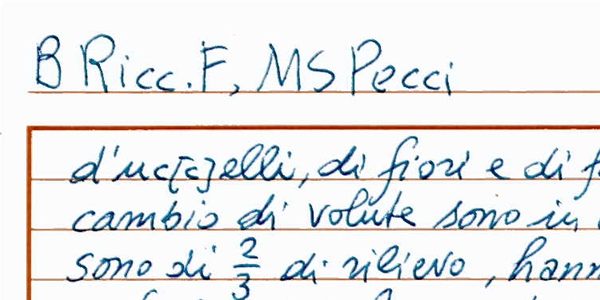 B Ricc. F, MS Pecci
d'uc[c]elli, di fiori e di f
cambio di volute sono in
sono di 2/3 di rilievo, hann